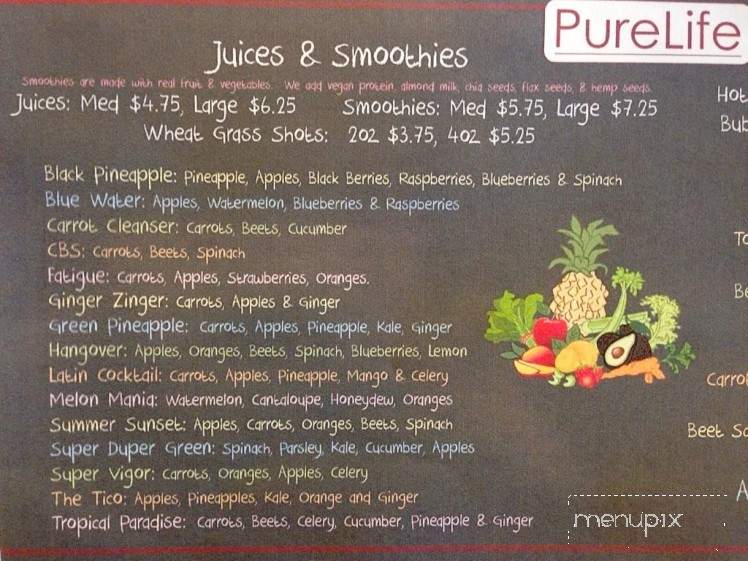 PureLife
Juices & Smoothies
Smoothies are made with real fruit & vegetables. We add vegan protein, almond milk, chia seeds, flax seeds, & hemp seeds.
Juices: Med $4.75, Large $6.25 Smoothies: Med $5.75, Large $7.25
Hot
Wheat Grass Shots: 2oz $3.75, 4oz $5.25
Bub
Black Pineapple: Pineapple, Apples, Black Berries, Raspberries, Blueberries & Spinach
Blue Water: Apples, Watermelon, Blueberries & Raspberries
Carrot Cleanser: Carrots, Beets, Cucumber
CBS: Carrots, Beets, Spinach
Fatigue: Carrots, Apples, Strawberries, Oranges.
Ginger Zinger: Carrots, Apples & Ginger
Green Pineapple: Carrots, Apples, Pineapple, Kale, Ginger
Hangover: Apples, Oranges, Beets, Spinach, Blueberries, Lemon
Latin Cocktail: Carrots, Apples, Pineapple, Mango & Celery
Melon Mania: Watermelon, Cantaloupe, Honeydew, Oranges
Summer Sunset: Apples, Carrots, Oranges, Beets, Spinach
Super Duper Green: Spinach, Parsley, Kale, Cucumber, Apples
Super Vigor: Carrots, Oranges, Apples, Celery
The Tico: Apples, Pineapples, Kale, Orange and Ginger
Tropical Paradise: Carrots, Beets, Celery, Cucumber, Pineapple & Ginger
To
Be
Carrot
Beet Sa
A
menupix